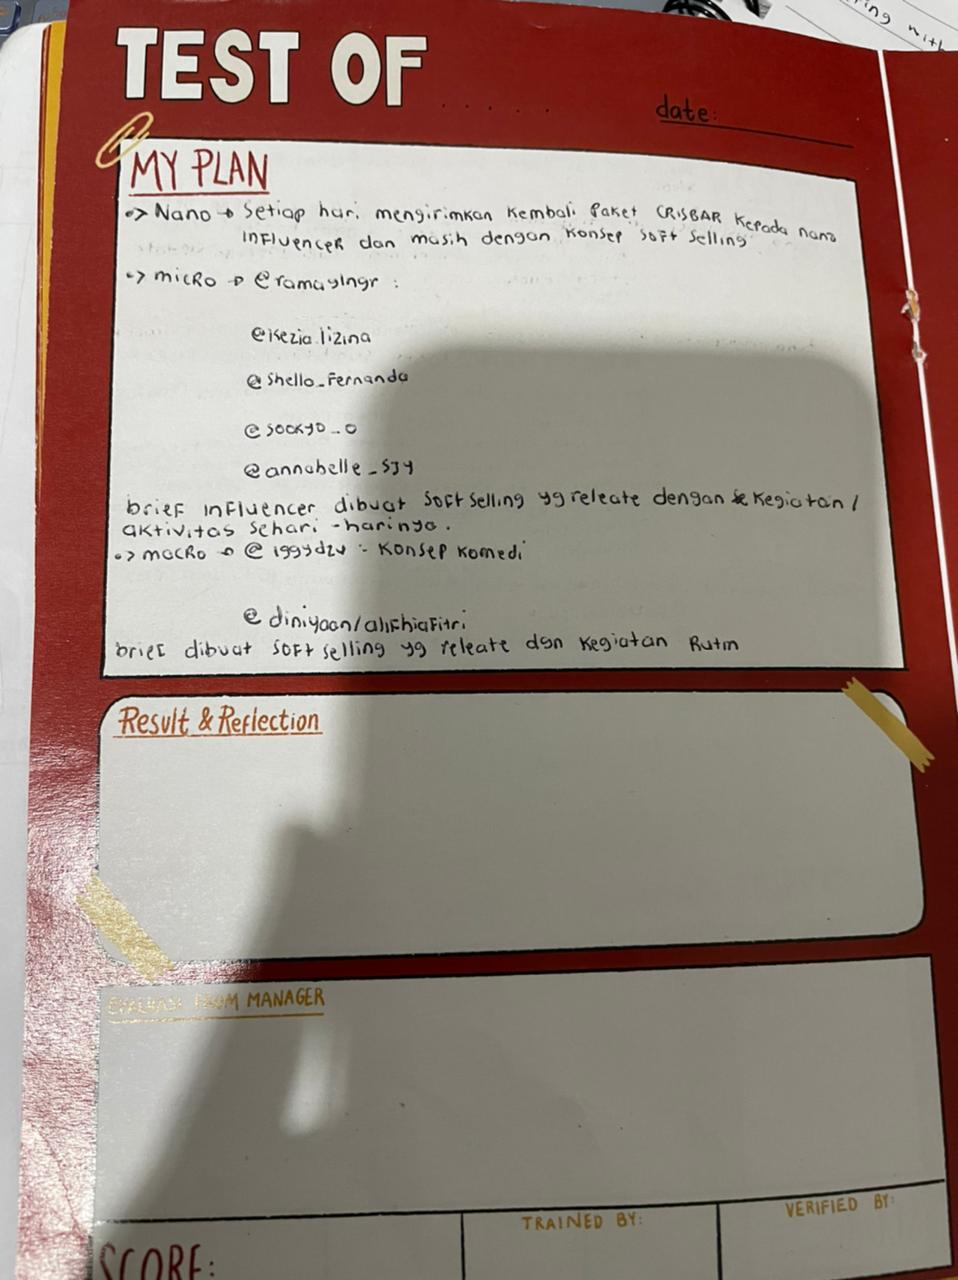 TEST OF . . . . .
date:
MY PLAN
-> Nano -> Setiap hari mengirimkan kembali Paket CRISBAR Kepada nano
InFluenceR dan masih dengan Konsep SoFt Selling
-> micRo -> @ramayingr :
@kezia.lizina
@shello_Fernanda
@sookyo_o
@annabelle_sjy
brieF InFluencer dibuat SoFt Selling yg releate dengan Kegiatan /
aktivitas Sehari - harinya.
-> macRo -> @iggydzu : Konsep Komedi
@diniyaan/aliFhiaFitri
brieF dibuat SoFt selling yg releate dgn Kegiatan Rutin
Result & Reflection
FROM MANAGER
SCORE:
TRAINED BY:
VERIFIED BY: